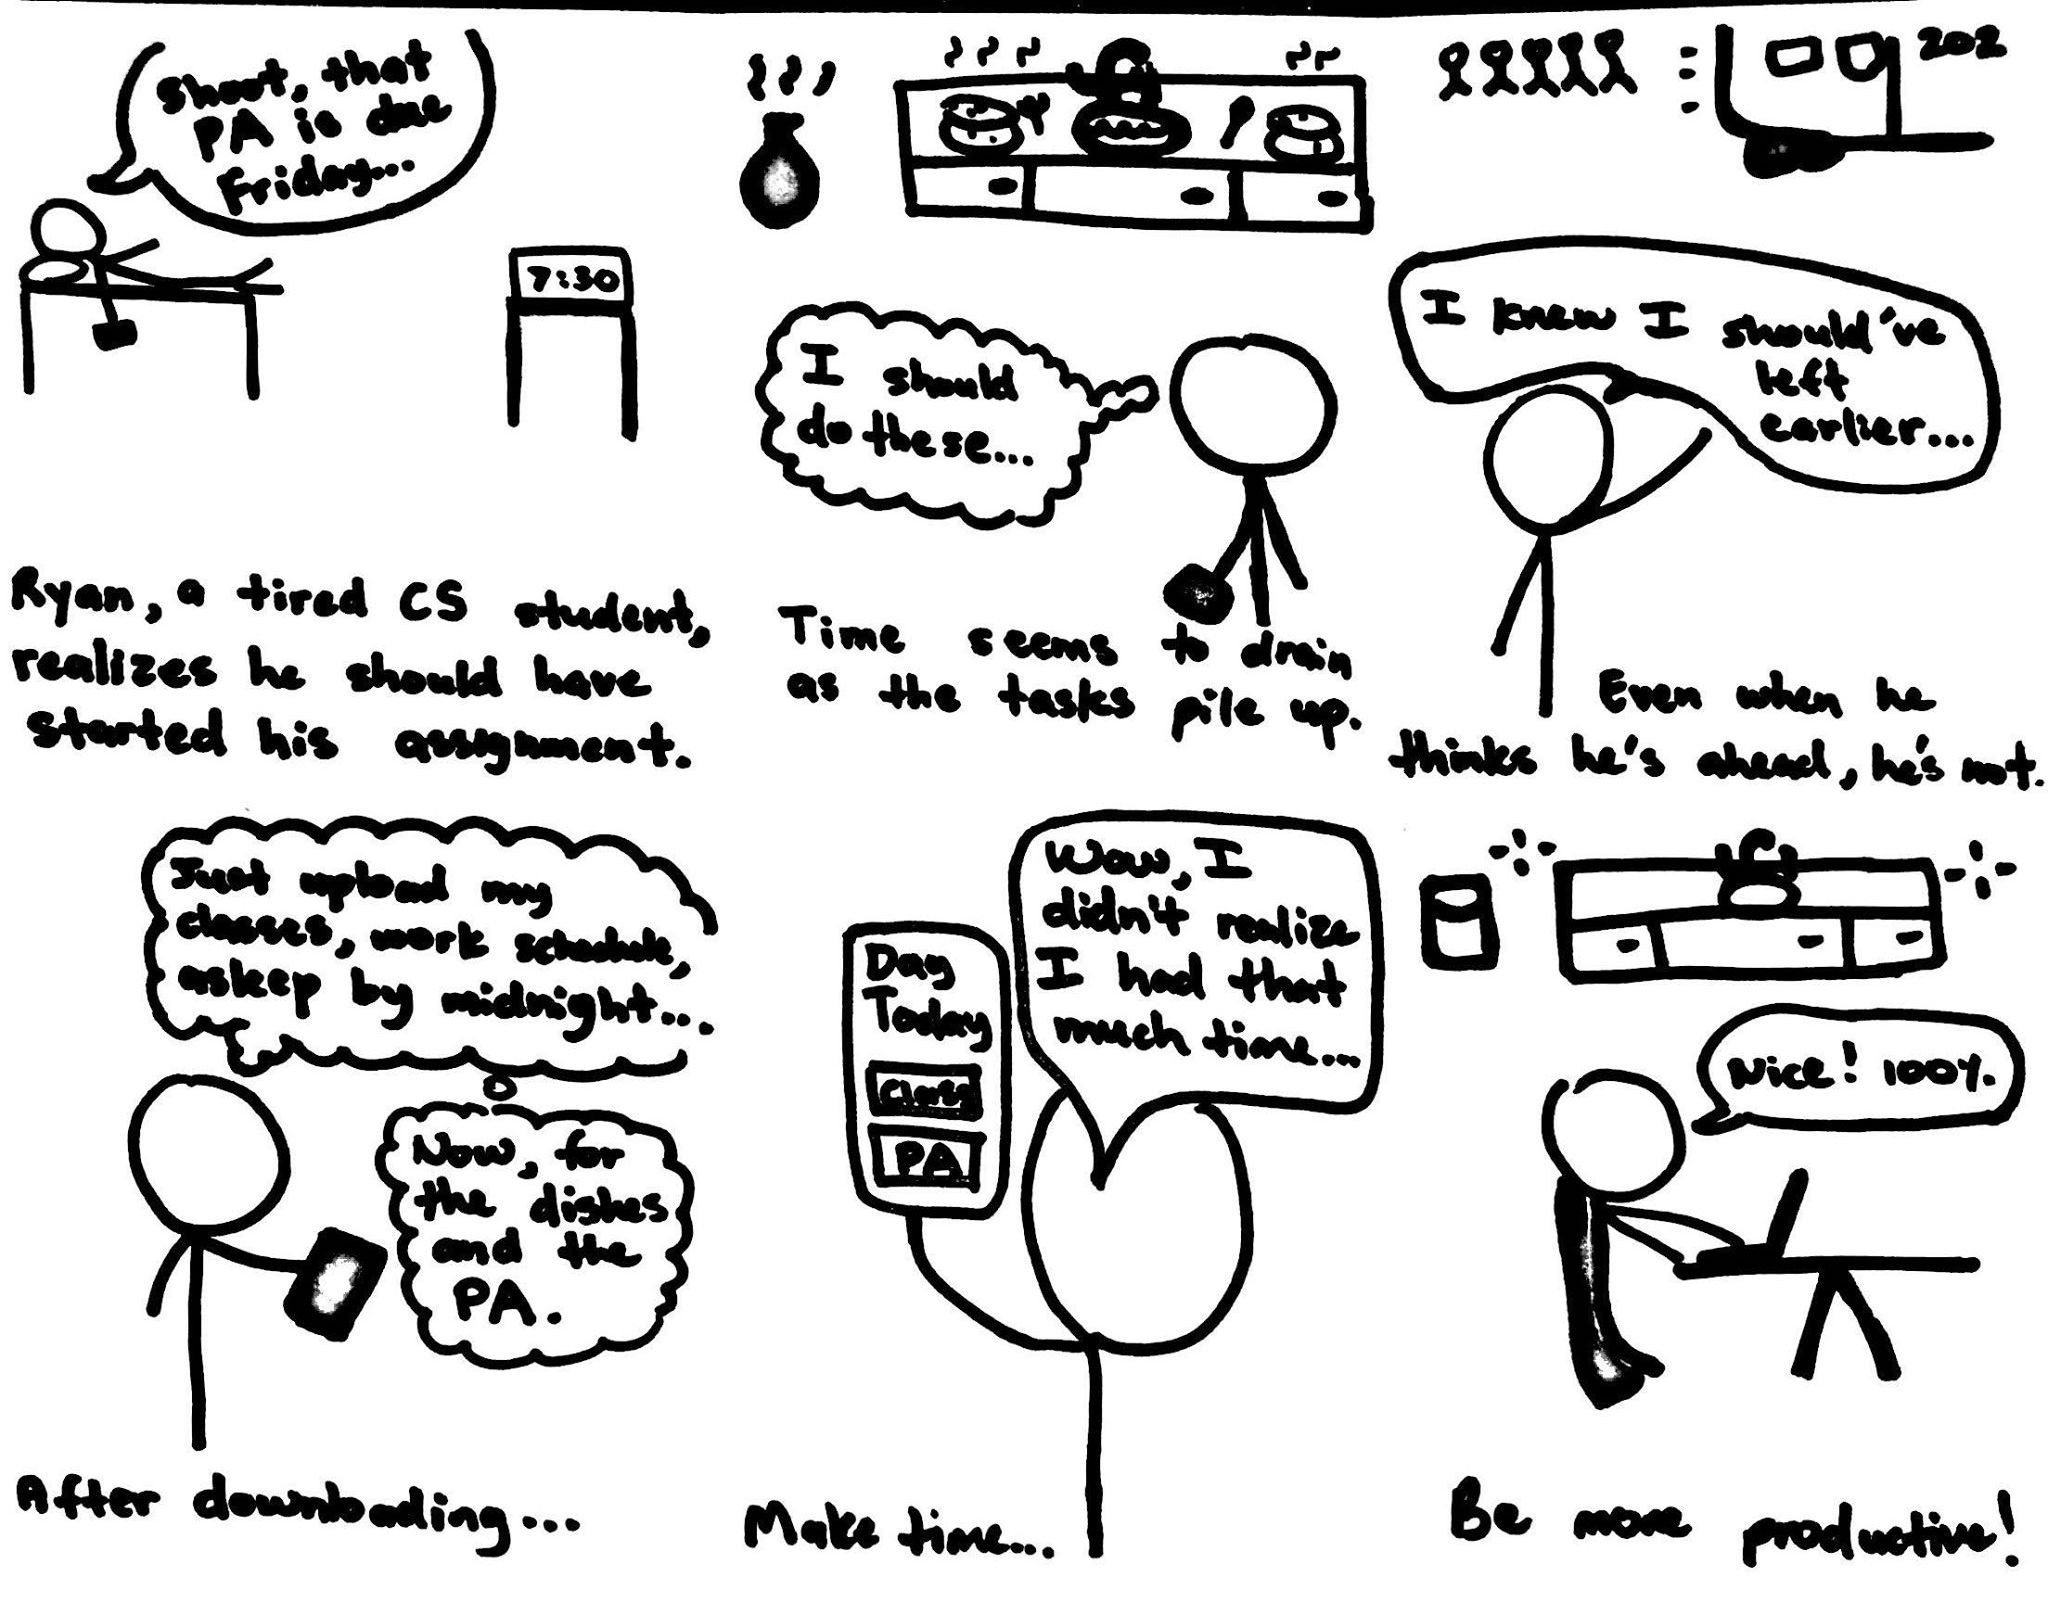 Shoot, that
PA is due
Friday...
7:30
Ryan, a tired CS student,
realizes he should have
started his assignment.
I should
do these...
Time seems to drain
as the tasks pile up.
202
I knew I should've
left
earlier...
Even when he
thinks he's ahead, he's not.
Just upload my
classes, work schedule,
asleep by midnight...
Now, for
the dishes
and the
PA.
After downloading...
Day
Today
Class
PA
Wow, I
didn't realize
I had that
much time...
Make time...
Nice! 100%.
Be more productive!